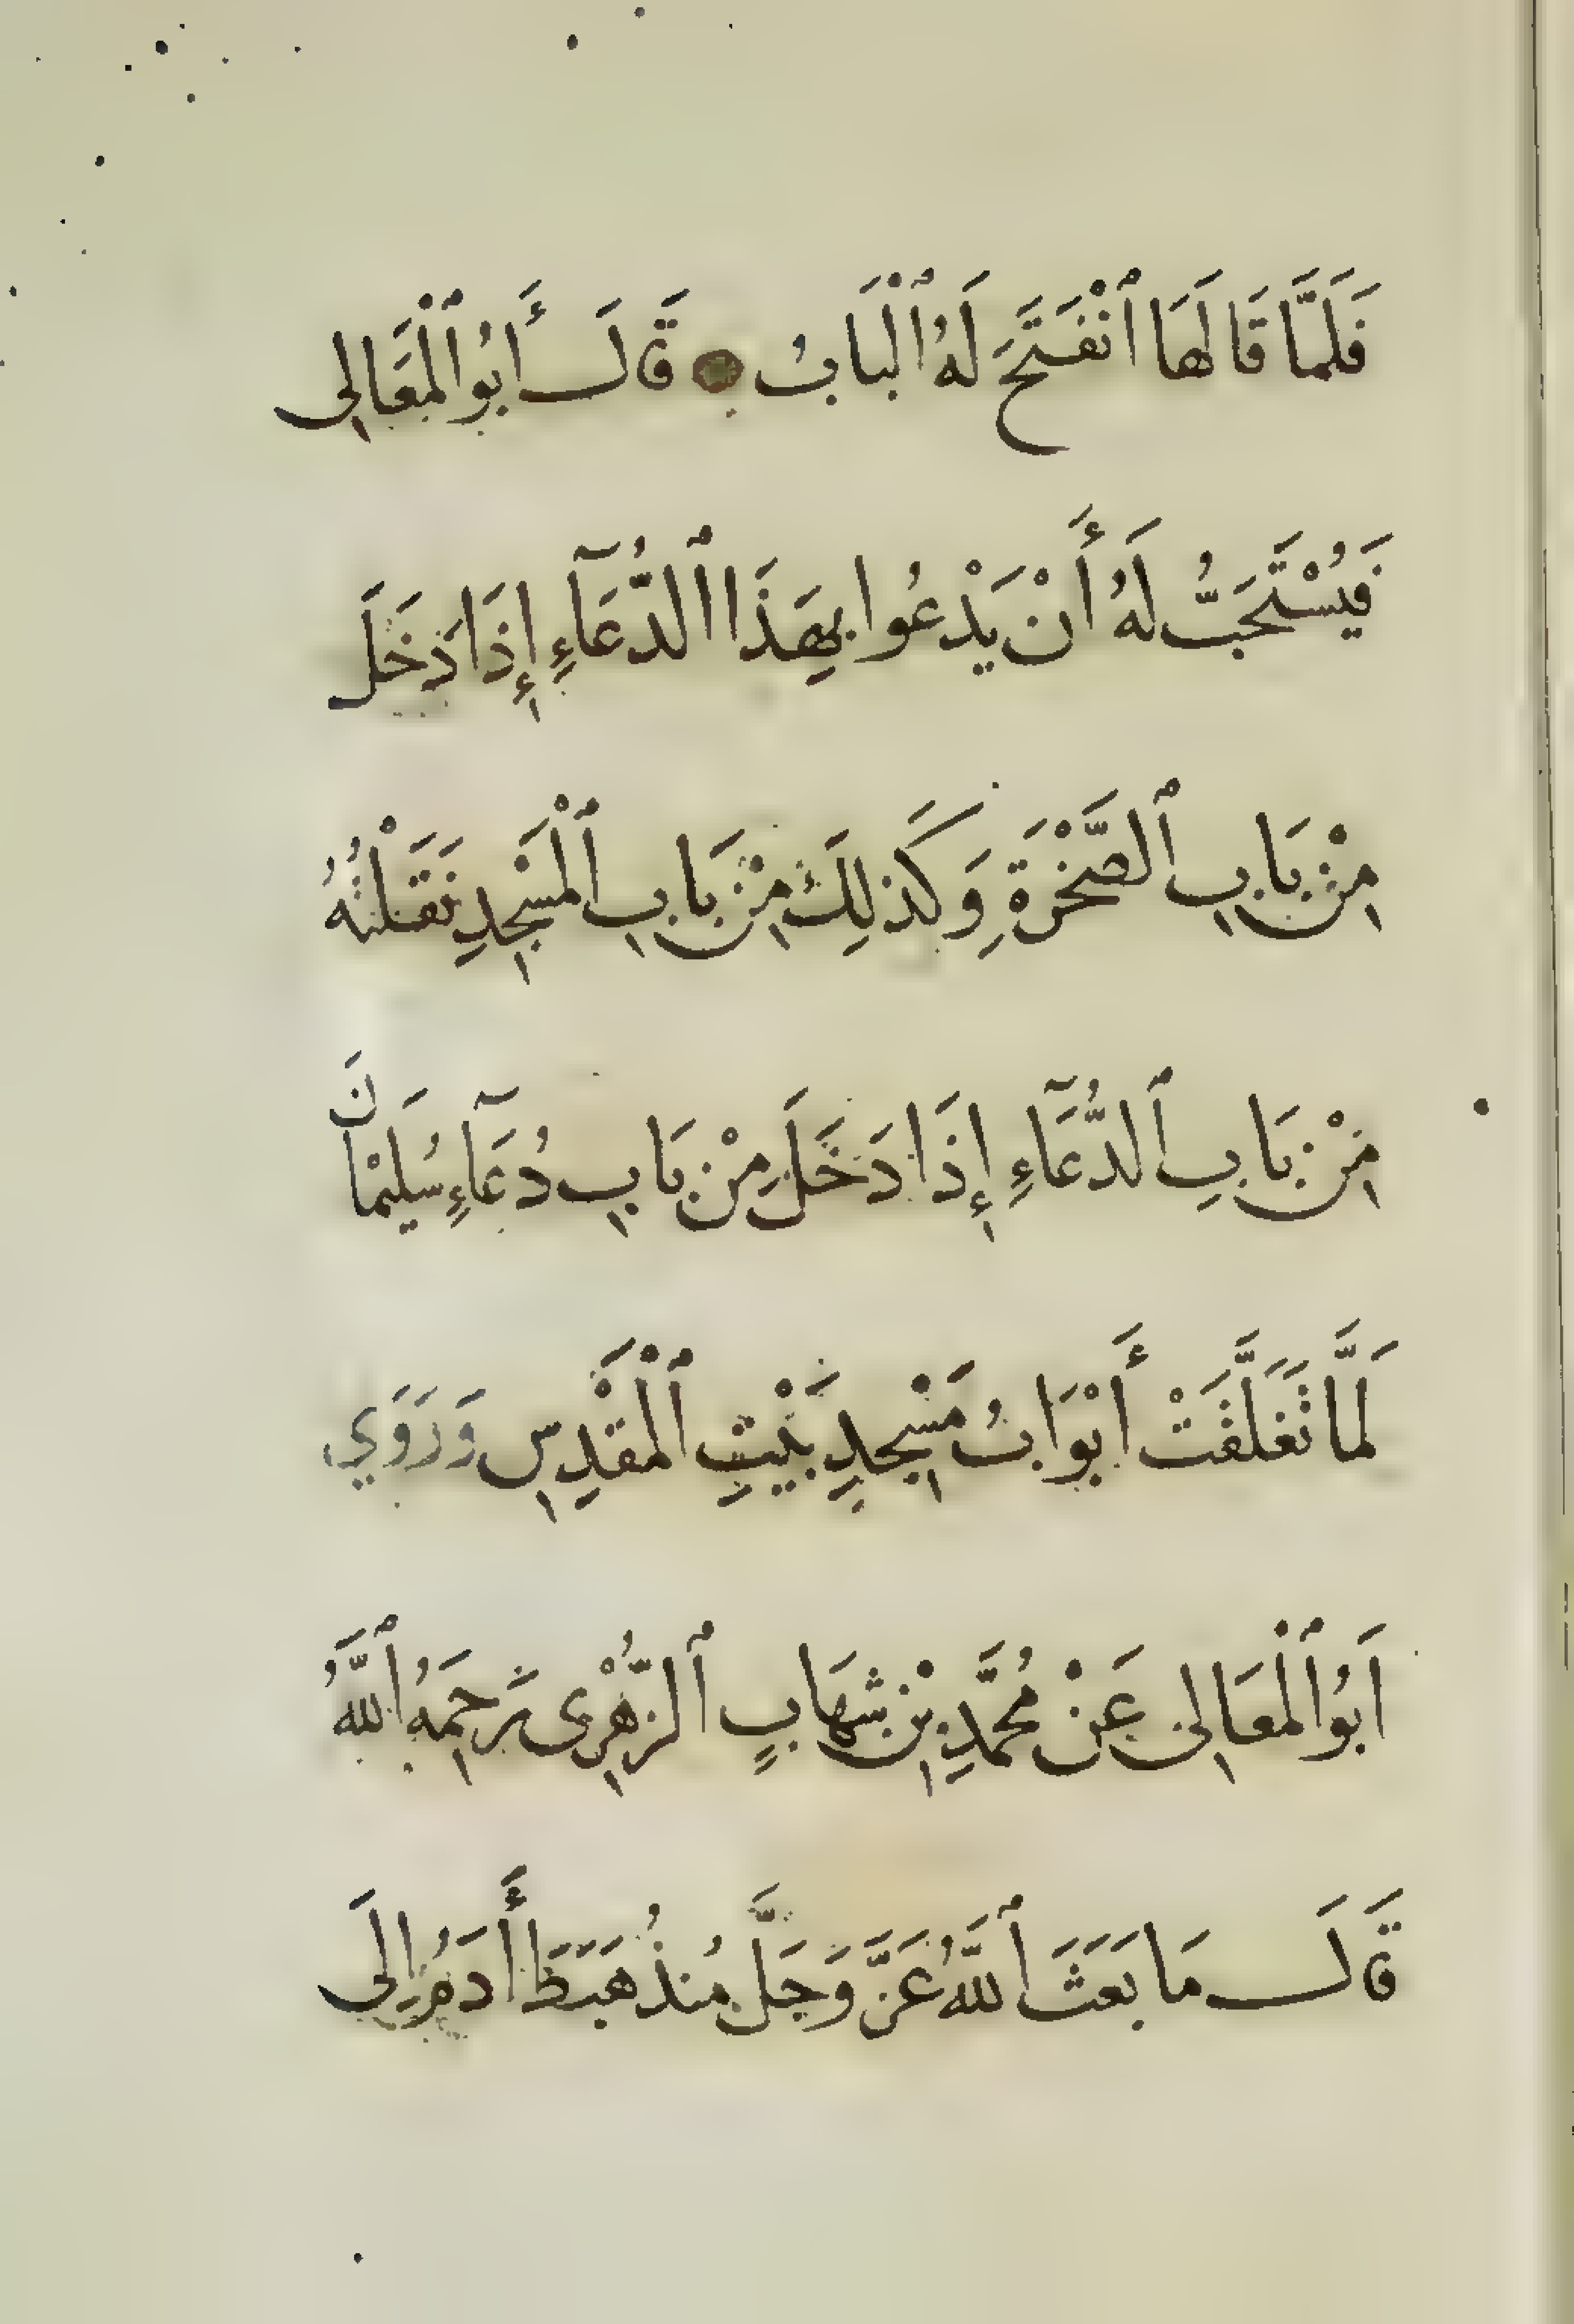 فَلَمَّا قَالَهَا ٱنْفَتَحَ لَهُ ٱلْبَابُ قَالَ أَبُو ٱلْمَعَالِى
فَيُسْتَحَبُّ لَهُ أَنْ يَدْعُوا بِهَذَا ٱلدُّعَآءِ إِذَا دَخَلَ
مِنْ بَابِ ٱلصَّخْرَةِ وَكَذلِكَ مِنْ بَابِ ٱلْمَسْجِدِ نَقَلْتُهُ
مِنْ بَابِ ٱلدُّعَآءِ إِذَا دَخَلَ مِنْ بَابِ دُعَآءِ سُلَيْمَانَ
لَمَّا تَغَلَّقَتْ أَبْوَابُ مَسْجِدِ بَيْتِ ٱلْمَقْدِسِ وَرَوَي
اَبُو ٱلْمَعَالِى عَنْ مُحَمَّدِ بْنِ شِهَابٍ ٱلزُّهْرِى رَحِمَهُ ٱللَّهُ
قَالَ مَا بَعَثَ ٱللَّهُ عَزَّ وَجَلَّ مُنذُ هَبَطَ أَدَمُ إِلَى